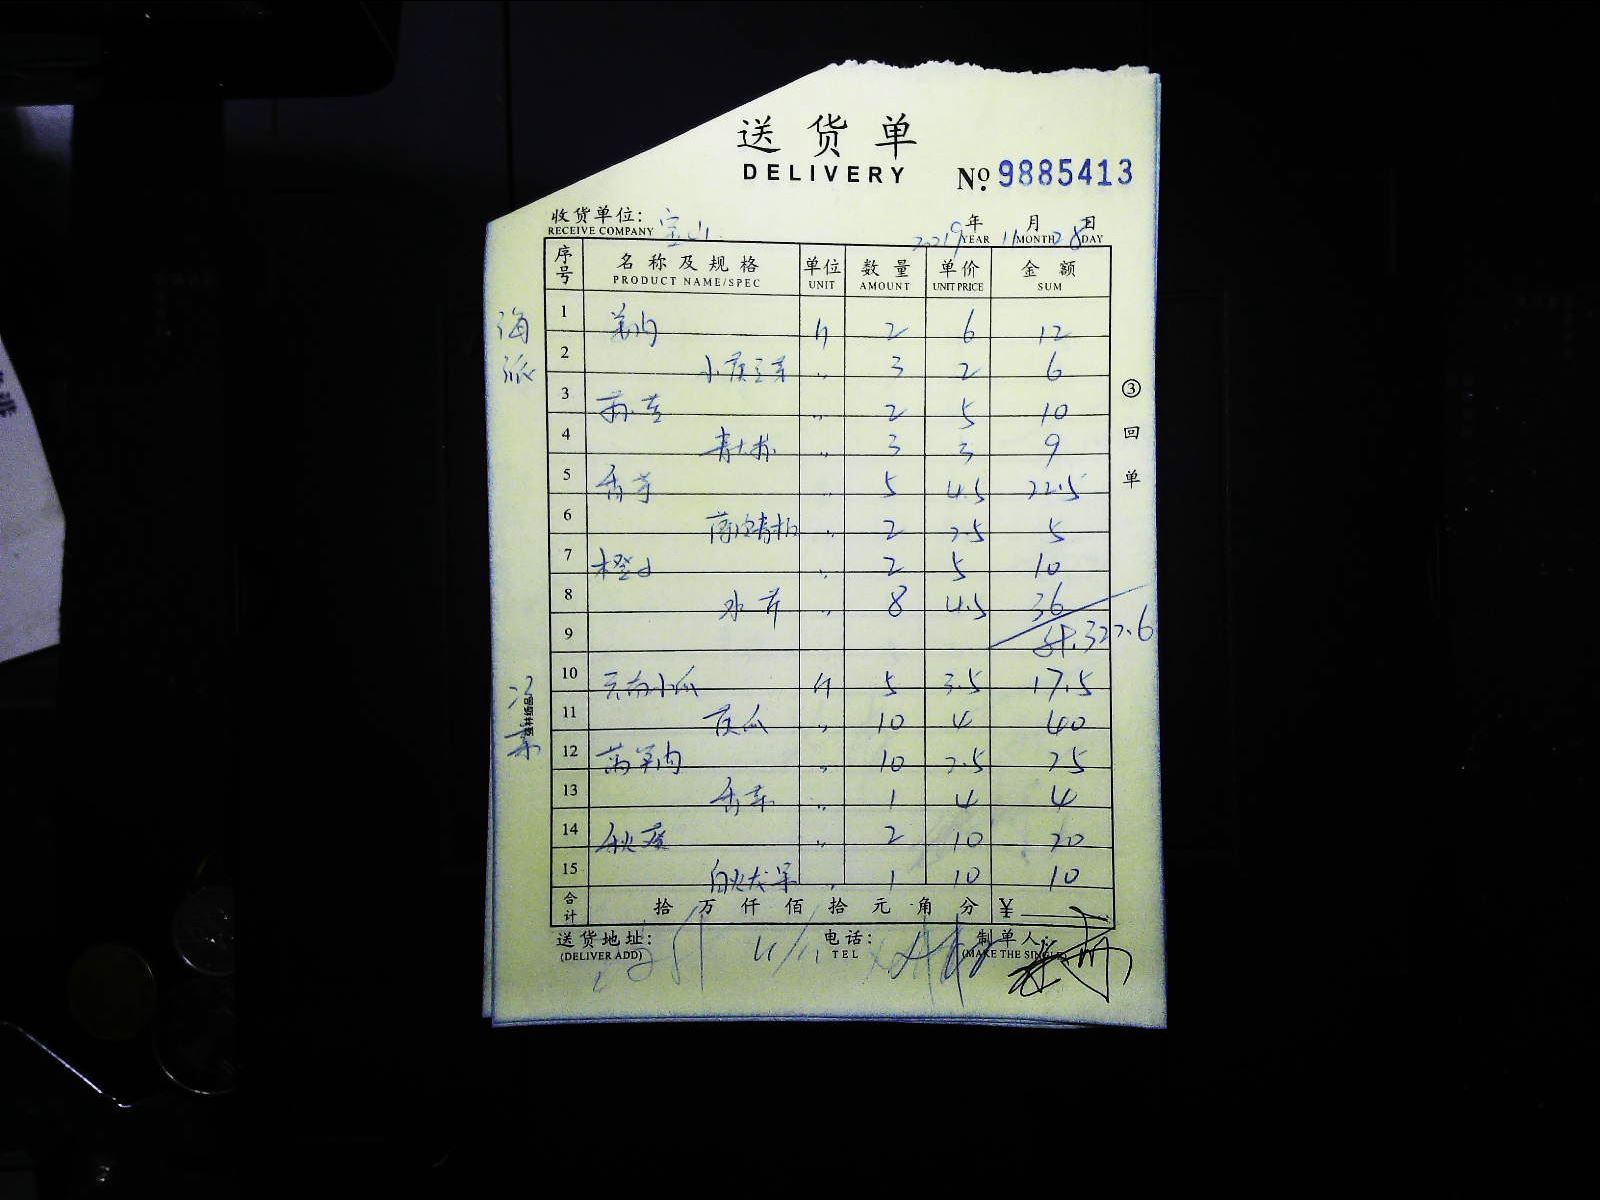 送货单
DELIVERY
No. 9885413
收货单位: 宝山
RECEIVE COMPANY
年 11 月 28 日
YEAR MONTH DAY
序号 名称及规格 单位 数量 单价 金额
PRODUCT NAME/SPEC UNIT AMOUNT UNIT PRICE SUM
海派
1 姜肉 斤 2 6 12
2 小黄豆芽 〃 3 2 6
3 〃 2 5 10
4 青大椒 〃 3 3 9
5 香芋 〃 5 4.5 22.5
6 〃 2 2.5 5
7 〃 2 5 10
8 水芹 〃 8 4.5 36
9
10 小瓜 斤 5 3.5 17.5
11 黄瓜 〃 10 4 40
12 〃 10 2.5 25
13 香菜 〃 1 4 4
14 秋葵 〃 2 10 20
15 〃 1 10 10
合计 拾 万 仟 佰 拾 元 角 分 ¥
③ 回单
送货地址: 电话: 制单人:
(DELIVER ADD) TEL (MAKE THE SINGLE)